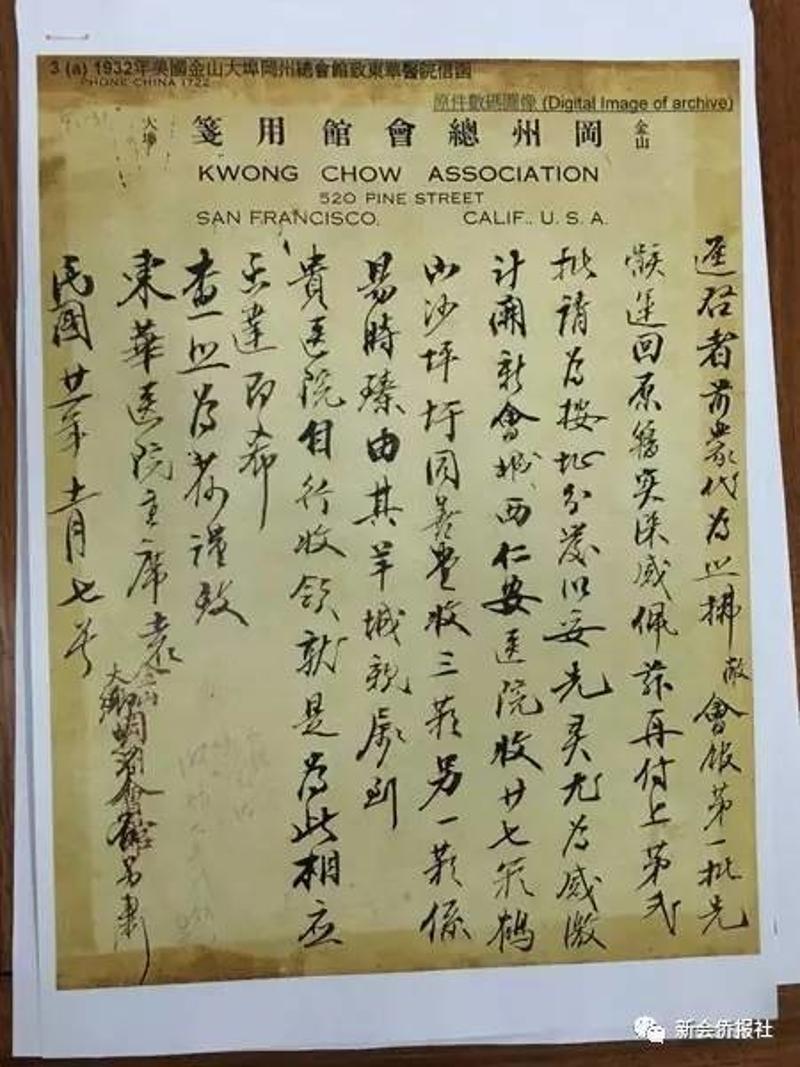 3 (a) 1932年美國金山大埠岡州總會館致東華醫院信函
PHONE CHINA 1722
原件數碼圖像 (Digital Image of archive)
金山 岡州總會館用箋 大埠
KWONG CHOW ASSOCIATION
520 PINE STREET
SAN FRANCISCO, CALIF., U. S. A.
逕啓者前蒙代為照拂敝會館第一批先
骸運回原籍安葬感佩茲再付上第弍
批請為按址分發以妥先灵尤為感激
計開新會城西仁安医院收廿七箱鶴
山沙坪圩同善堂收三箱另一箱係
易時臻由其羊城親屬到
貴医院自行收領就是為此相应
函達即希
查照為荷謹致
東華医院主席
金山大埠岡州會館
民國廿一年十一月七号
新会侨报社